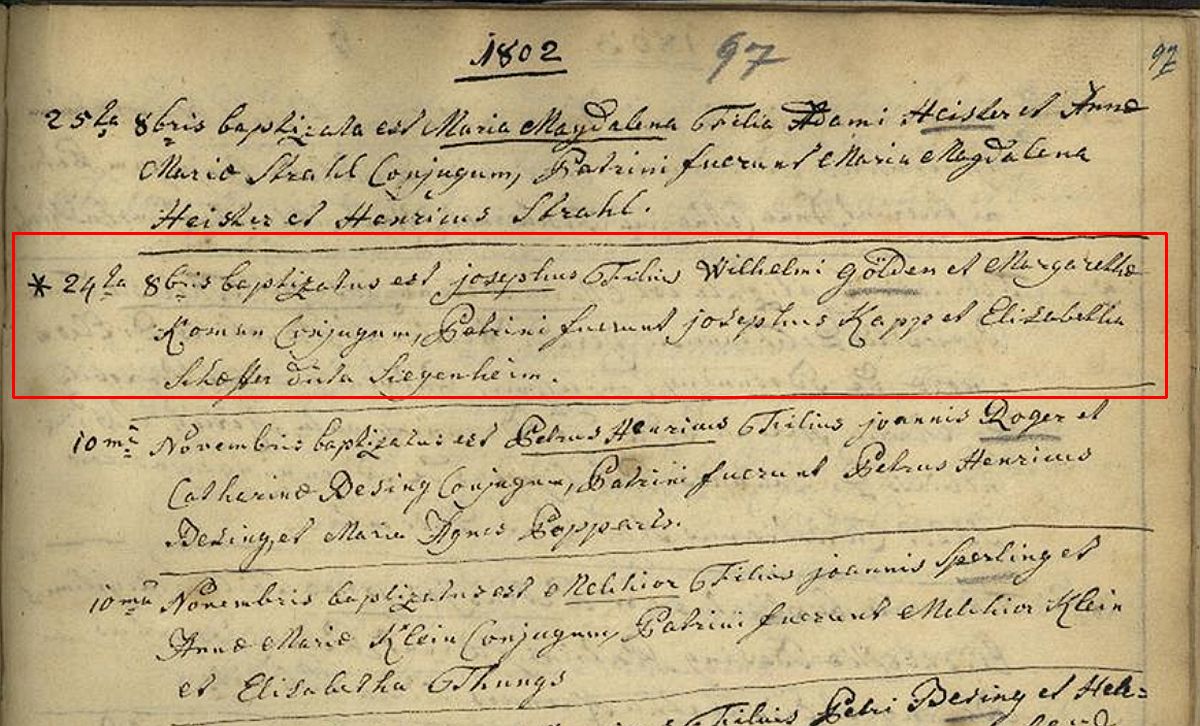 1802 97
97
25ta 8bris baptizata est Maria Magdalena Filia Adami Heister et Annæ
Mariæ Strahl Conjugum, Patrini fuerunt Maria Magdalena
Heister et Henricus Strahl.
* 24ta 8bris baptizatus est josephus Filius Wilhelmi Gölden et Margarethæ
Roman Conjugum, Patrini fuerunt josephus Kapp et Elisabetha
Schæffer dicta Siegenheim.
10ma Novembris baptizatus est Petrus Henricus Filius joannis Roger et
Catharinæ Desing Conjugum, Patrini fuerunt Petrus Henricus
Desing, et Maria Agnes Popparts.
10ma Novembris baptizatus est Melchior Filius joannis Sperling et
Annæ Mariæ Klein Conjugum, Patrini fuerunt Melchior Klein
et Elisabetha Thungs
Filius Petri Desing et Hele=